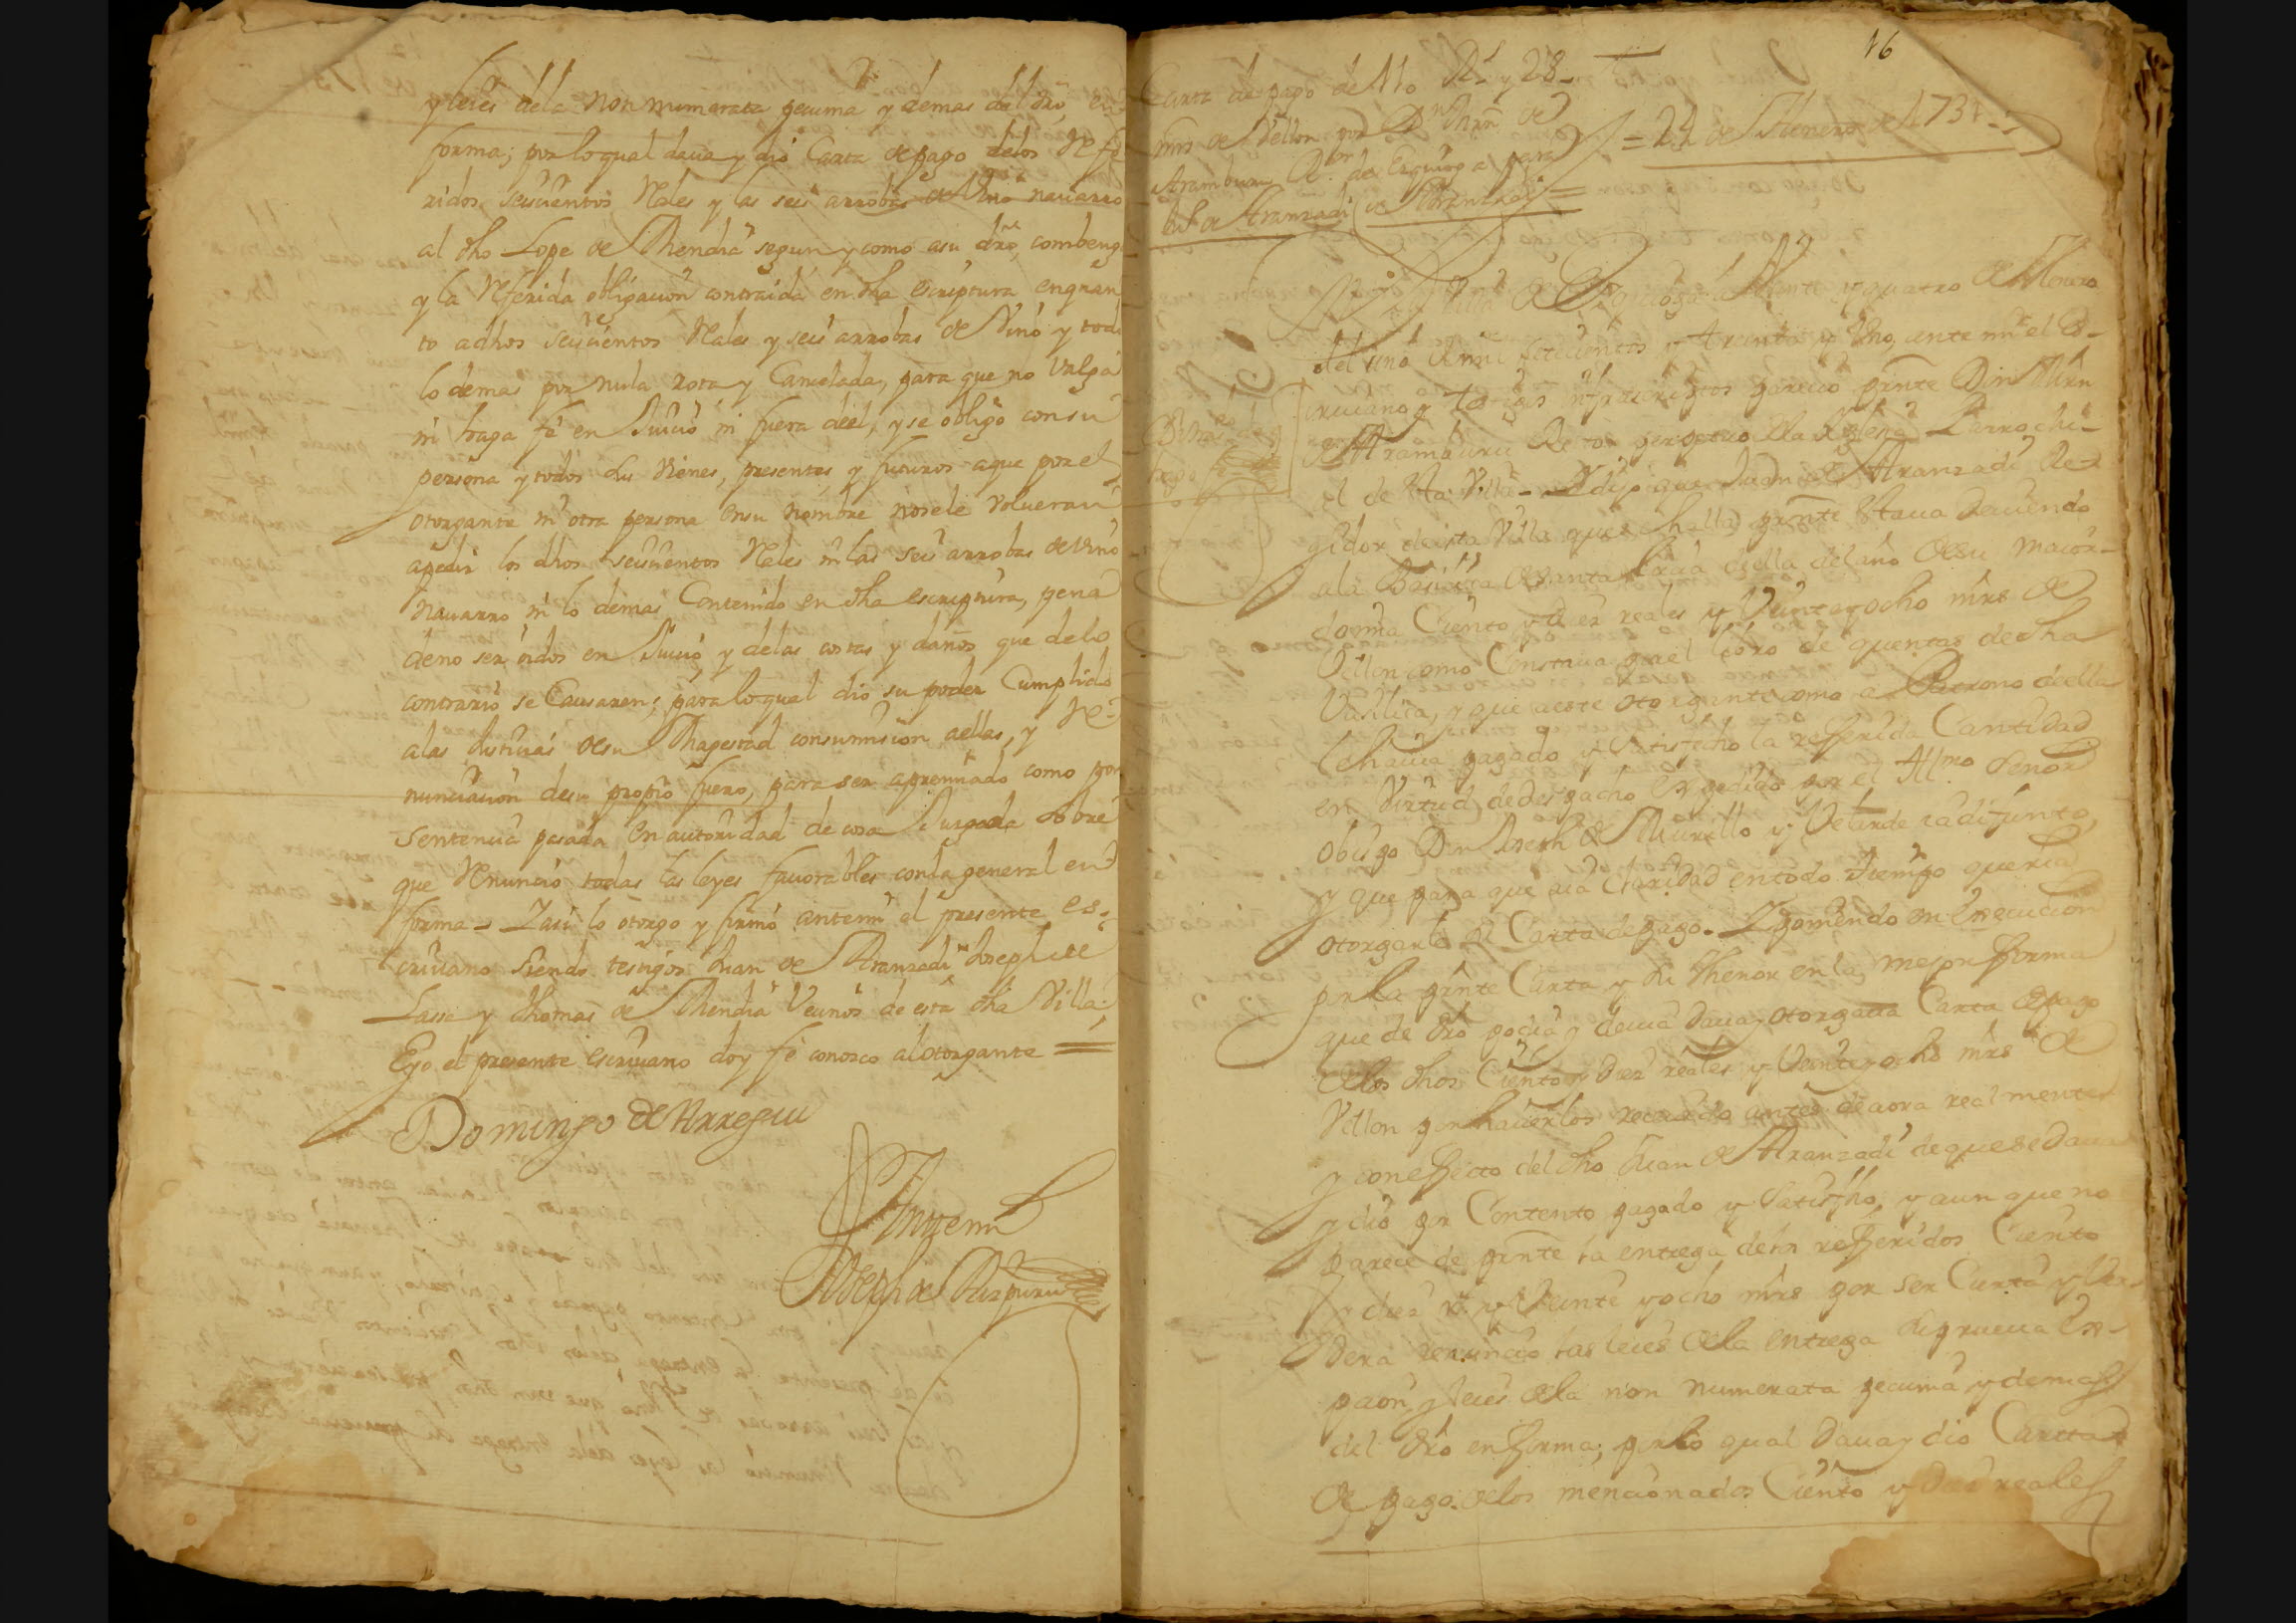 y leies dela non numerata pecunia y demas del dro, en
forma; por lo qual daua y dio Carta de pago delos Refe
ridos seiscientos Reales y las seis arrobas de Vino nauarro
al dho Lope de Mendia segun y como asu dro, combeng
y la Referida obligacion contraida en dha escriptura en quan
to adhos seiscientos Reales y seis arrobas de Vino y todo
lo demas por nula rota y Cancelada, para que no Valga
ni haga fe en Juicio ni fuera deel, y se obligo con su
persona y todos sus Vienes, presentes y futuros aque por el
otorgante ni otra persona en su nombre nosele Volueran
apedir los dhos seiscientos Reales ni las seis arrobas de vino
Nauarro ni lo demas Contenido en dha escriptura, pena
deno ser oidos en Juicio y delas costas y daños que delo
contrario se Causaren; para lo qual dio su poder Cumplido
alas Justicias de su Magestad con sumision aellas, y Re=
nunciacion de su propio fuero, para ser apremiado como por
sentencia pasada en autoridad de cosa Juzgada sobre
que Renuncio todas las leyes fauorables con la general en
forma = Y asi lo otorgo y firmo antemi el presente es=
criuano siendo testigos Juan de Aranzadi Joseph de
Lassa y Thomas de Mendia Vecinos de esta dha Villa;
E yo el presente escriuano doy fe conozco al otorgante =
Domingo de Arregui
Antemi
Joseph de
16
Carta de pago de 110 Rs y 28
mrs de Vellon por Dn Mrn de
Aramburu Rr de Ezquioga para
Jun de Aranzadi
= 24 de Henero de 1731
En la Villa de Ezquioga a Veinte y quatro de Henero
del año de mil setecientos y treinta y Vno, ante mi el Es=
criuano y testigos infrascriptos parecio pnte Don Mrn
de Aramburu Retor perpetuo de la Iglesia Parrochi=
al de esta Villa = Y dijo que Juan de Aranzadi Re=
gidor de esta Villa que se halla pnte estaua deuiendo
ala Basilica de santa Lucia de ella del año de su maior=
domia Ciento y diez reales y Veinte y ocho mrs de
Vellon como Constaua por el libro de quentas de dha
Vasilica, y que aeste otorgante como a Patrono de ella
le hauia pagado y satisfecho la referida Cantidad
en Virtud de despacho expedido por el Yllmo Señor
obispo Don Joseph de Murillo y Velarde ia difunto,
y que para que aia Claridad en todo tiempo queria
otorgarle su Carta de pago. Y poniendo en execucion
por la pnte Carta y su thenor en la mejor forma
que de dro podia y deuia daua y otorgaua Carta de pago
de los dhos Ciento y diez reales y Veinte y ocho mrs de
Vellon por hauerlos receuido antes de aora real mente
y con effecto del dho Juan de Aranzadi de que se daua
y dio por Contento pagado y satisfho, y aun que no
parece de pnte la entrega delos referidos Ciento
y diez rs y Veinte y ocho mrs por ser Cierta y Ver=
dera renuncio las leies de la entrega su prueua Ex=
pcion y leies de la non numerata pecunia y demas
del dro en forma; por lo qual daua y dio Carta
de pago. delos mencionados Ciento y diez reales